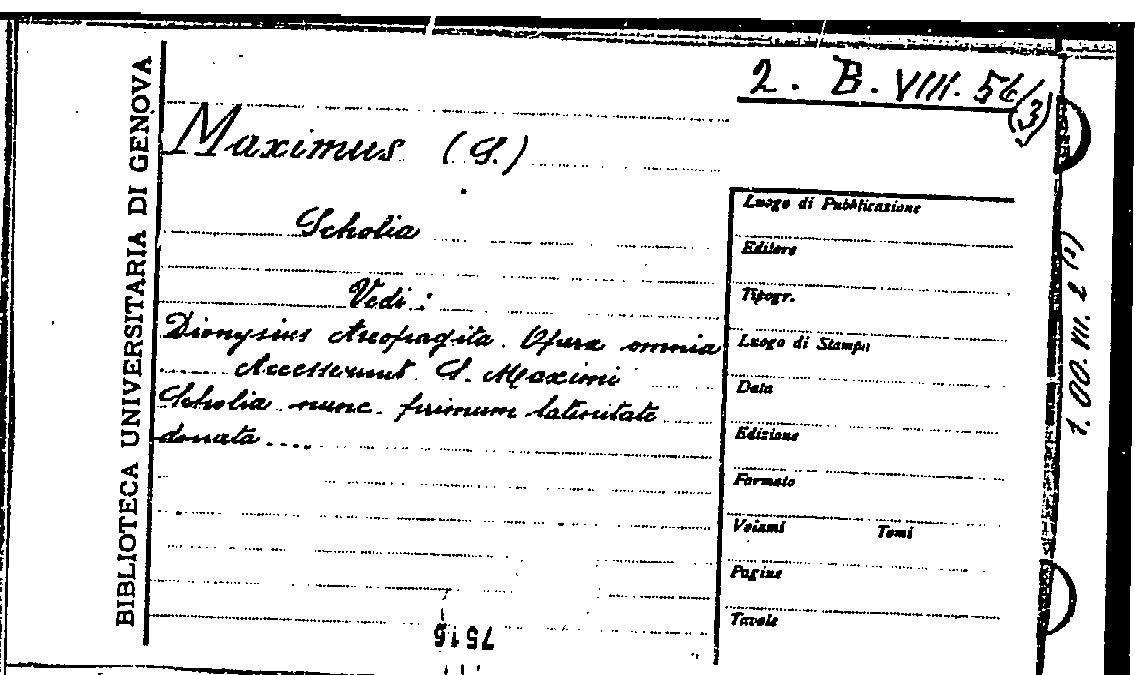 2. B. VIII. 56/(3)
BIBLIOTECA UNIVERSITARIA DI GENOVA
Maximus (S.)
Scholia
Vedi :
Dionysius Areopagita. Opera omnia
..... Accesserunt S. Maximi
Scholia nunc primum latinitate
donata ....
Luogo di Pubblicazione
Editore
Tipogr.
Luogo di Stampa
Data
Edizione
Formato
Volumi Tomi
Pagine
Tavole
7516